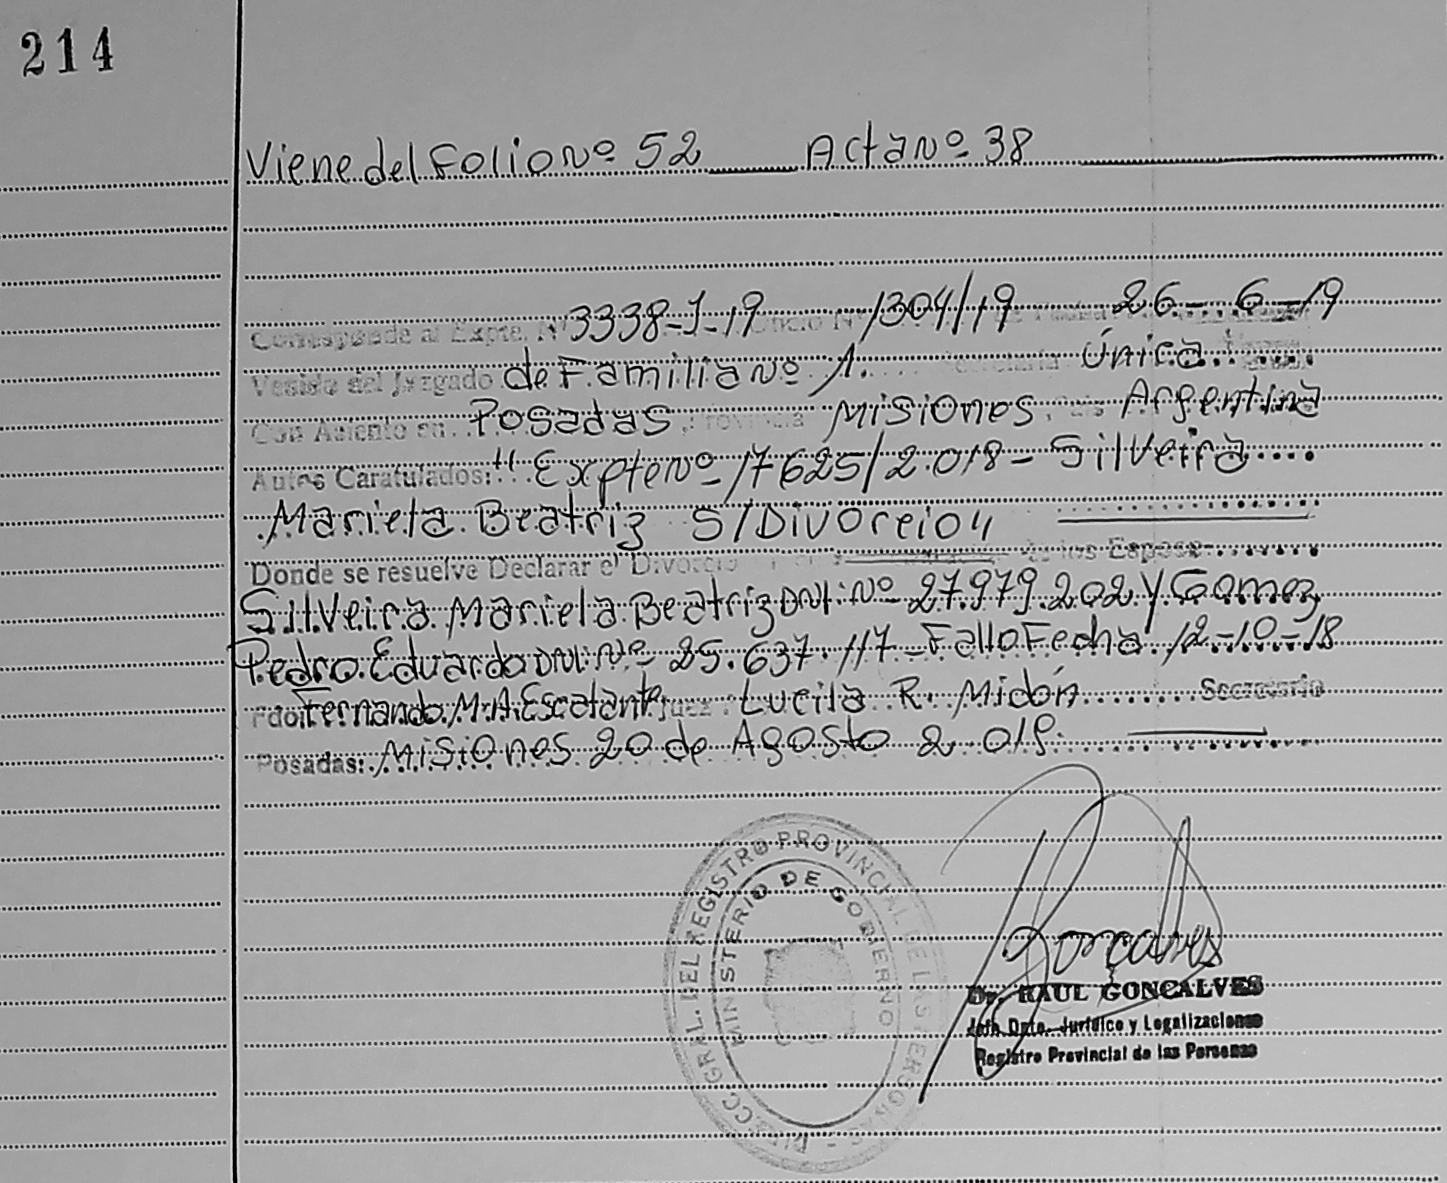 214
Viene del Folio Nº 52 Acta Nº 38
Corresponde al Expte. Nº 3338-J-19 Oficio Nº 1304/19 de Fecha 26-6-19
Venido del Juzgado de Familia Nº 1. Secretaría Única
Con Asiento en Posadas, Provincia Misiones, País Argentina
Autos Caratulados: "Expte Nº 17625/2.018 - Silveira
Mariela Beatriz S/Divorcio"
Donde se resuelve Declarar el Divorcio de los Esposos
Silveira Mariela Beatriz DNI: Nº 27.979.202 y Gomez
Pedro Eduardo DNI: Nº 25.637.117 - Fallo Fecha 12-10-18
Fdo: Fernando M.A. Escalante Juez: Lucila R. Midón Secretario
Posadas: Misiones 20 de Agosto 2.019.
DIR. GRAL. DEL REGISTRO PROVINCIAL DE LAS PERSONAS
MINISTERIO DE GOBIERNO
Goncalves
Dr. RAUL GONCALVES
Jefe Dpto. Jurídico y Legalizaciones
Registro Provincial de las Personas